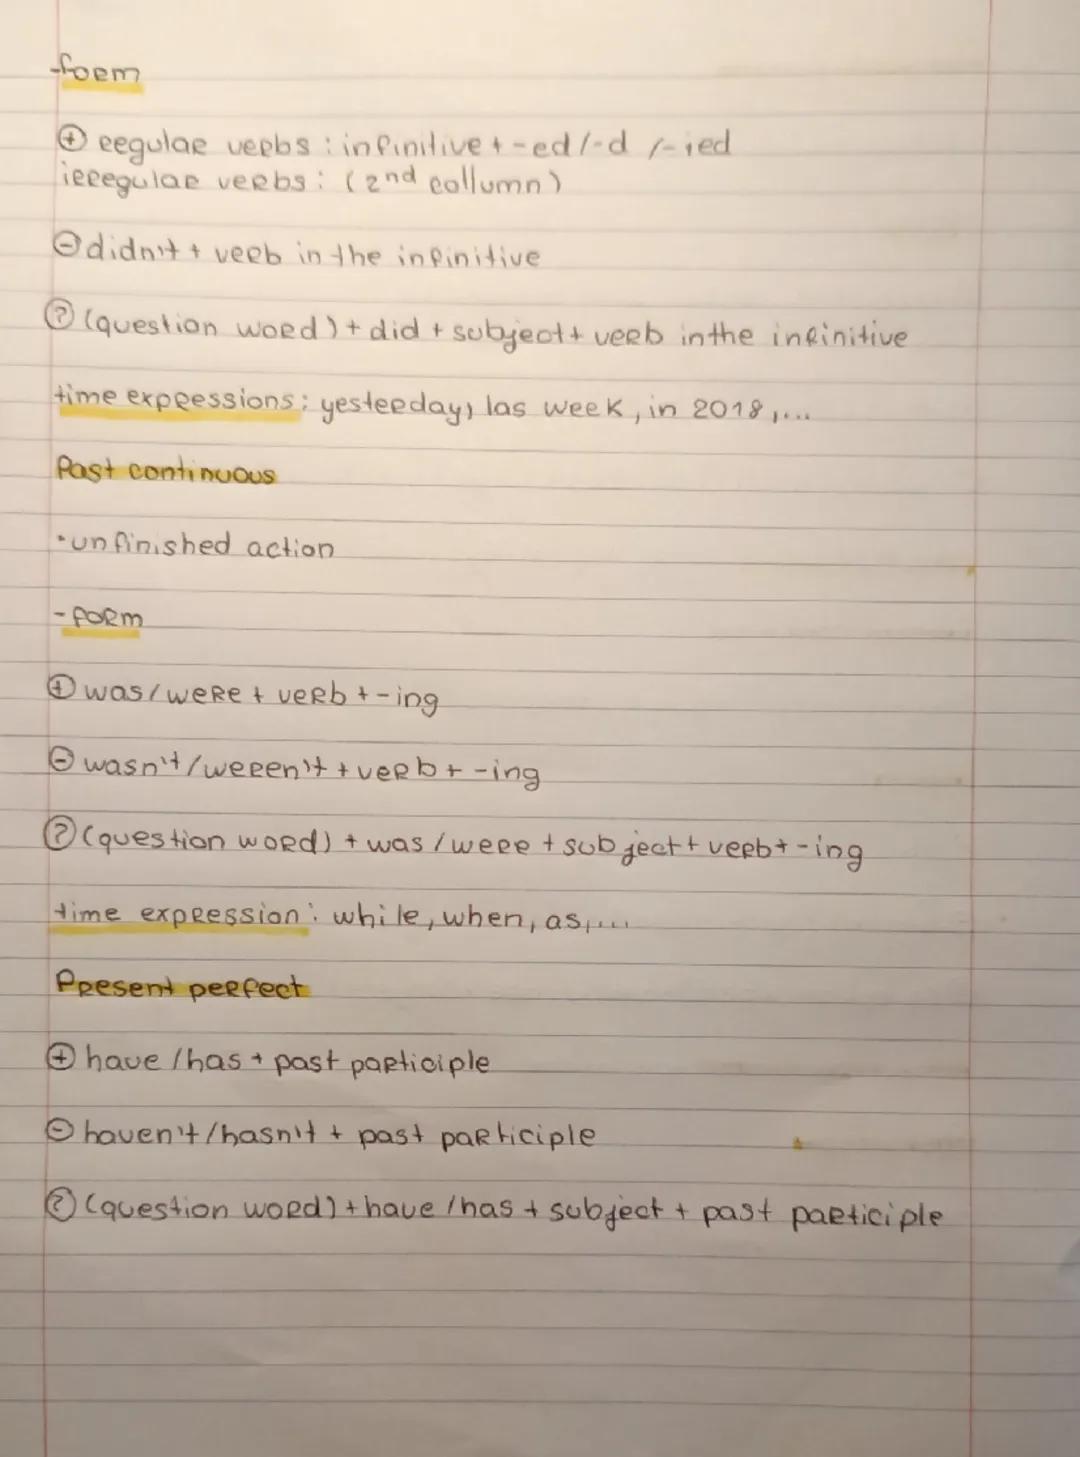 -form
⊕ regular verbs : infinitive + -ed /-d /-ied
irregular verbs : (2nd collumn)
⊖ didn't + verb in the infinitive
? (question word) + did + subject + verb in the infinitive
time expressions : yesterday, las week, in 2018,...
Past continuous
• unfinished action
- form
⊕ was/were + verb + -ing
⊖ wasn't/weren't + verb + -ing
? (question word) + was/were + subject + verb + -ing
time expression : while, when, as,...
Present perfect
⊕ have /has + past participle
⊖ haven't/hasn't + past participle
? (question word) + have /has + subject + past participle